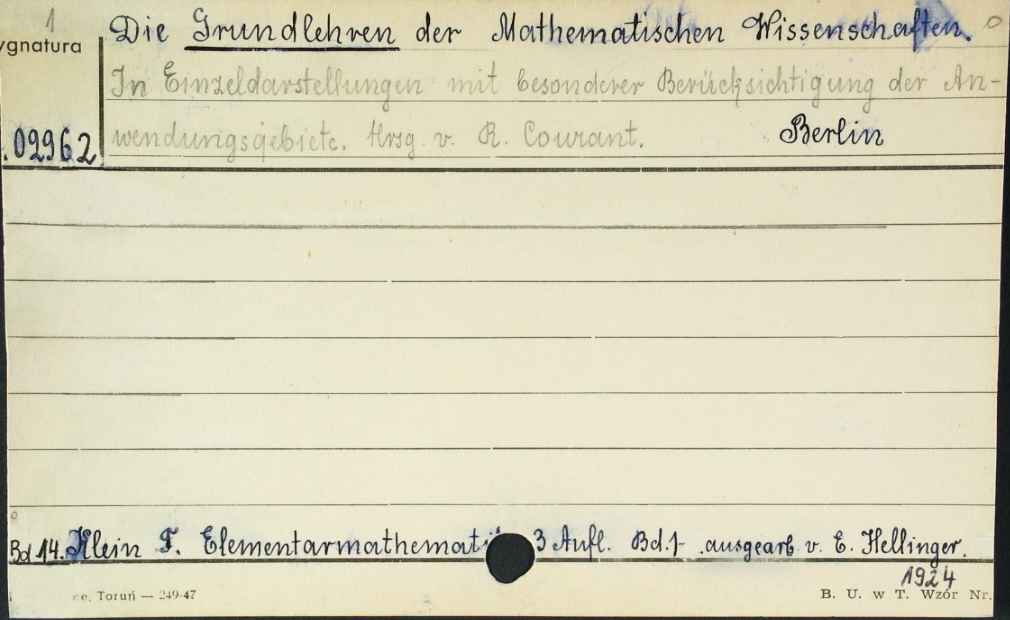 1
Die Grundlehren der Mathematischen Wissenschaften.
ygnatura
In Einzeldarstellungen mit besonderer Berücksichtigung der An-
.02962
wendungsgebiete. Hrsg. v. R. Courant. Berlin
Bd 14. Klein F. Elementarmathemati 3 Aufl. Bd.1 ausgearb v. E. Hellinger.
1924
ce, Toruń — 249-47 B. U. w T. Wzór Nr.